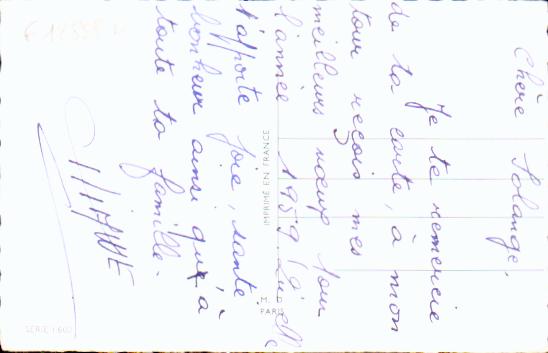 Chère Solange,
Je te remercie
de ta carte, à mon
tour reçois mes
meilleurs vœux pour
l'année 1959. Qu'elle
t'apporte joie, santé
bonheur ainsi qu'à
toute ta famille.
IMPRIMÉ EN FRANCE
M. D.
PARIS
SERIE 1 602